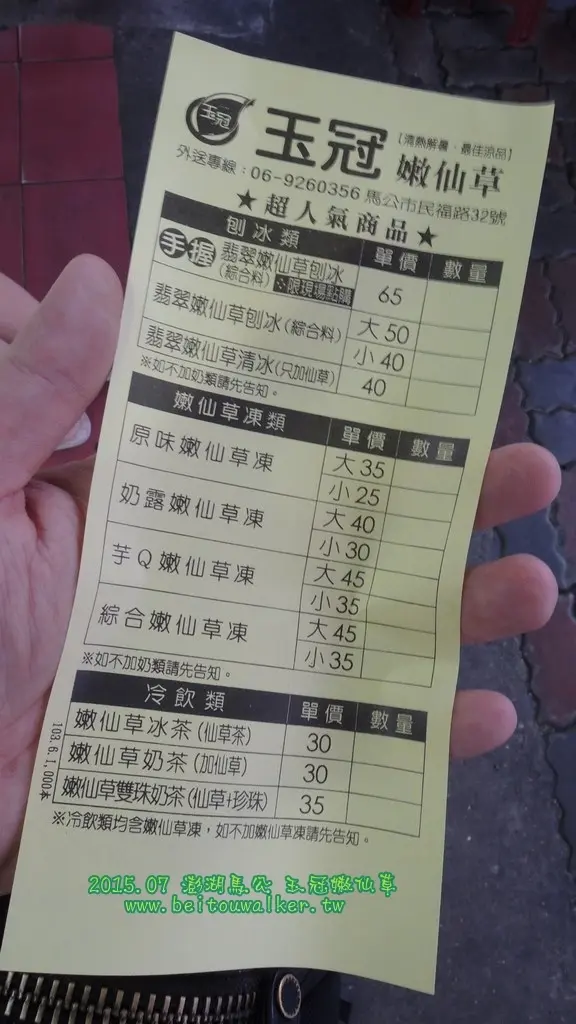 玉冠
玉冠
【清熱解毒、最佳涼品】
嫩仙草
外送專線：06-9260356 馬公市民福路32號
★超人氣商品★
刨冰類 單價 數量
手握 翡翠嫩仙草刨冰
(綜合料) ※限現場點購 65
翡翠嫩仙草刨冰(綜合料) 大50
小40
翡翠嫩仙草清冰(只加仙草) 40
※如不加奶類請先告知。
嫩仙草凍類 單價 數量
原味嫩仙草凍 大35
小25
奶露嫩仙草凍 大40
小30
芋Q嫩仙草凍 大45
小35
綜合嫩仙草凍 大45
小35
※如不加奶類請先告知。
冷飲類 單價 數量
嫩仙草冰茶(仙草茶) 30
嫩仙草奶茶(加仙草) 30
嫩仙草雙珠奶茶(仙草+珍珠) 35
※冷飲類均含嫩仙草凍，如不加嫩仙草凍請先告知。
103.6.1,000本
2015.07 澎湖馬公 玉冠嫩仙草
www.beitouwalker.tw